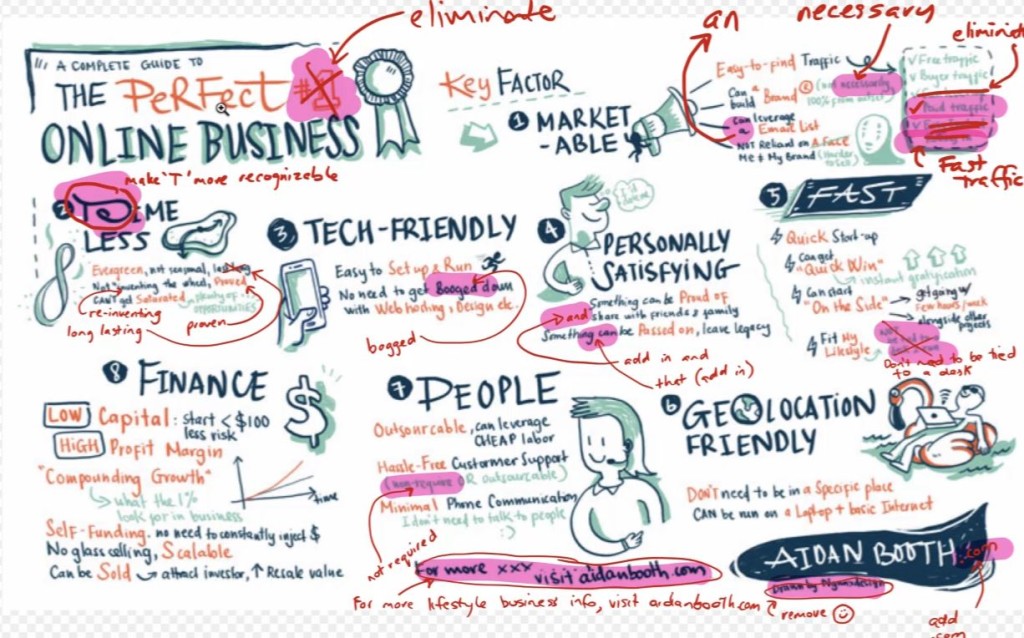 eliminate
an
necessary
eliminate
A COMPLETE GUIDE TO
THE PERFECT
ONLINE BUSINESS
Key FACTOR
1 MARKET
-ABLE
Easy-to-find Traffic
Can build a "Brand" (not necessarily
100% from outset)
can leverage
a Email List
NOT Reliant on A Face
Me & My Brand (Harder
to sell)
✓ Free traffic
✓ Buyer traffic
✓ Paid traffic
Fast
traffic
make 'T' more recognizable
2 TIME
LESS
Evergreen, not seasonal,
Not inventing the wheel, Proved
CAN'T get Saturated plenty of
OPPORTUNITIES
re-inventing
long lasting
proven
3 TECH-FRIENDLY
Easy to Set up & Run
No need to get Booged down
with Web hosting, Design etc.
bogged
4 PERSONALLY
SATISFYING
I did it
Something can be Proud of
and share with friends & family
Something can be Passed on, leave legacy
add in and
that (add in)
5 FAST
Quick Start-up
Can get
"Quick Win"
instant gratification
Can start
"On the Side"
getting w/
Few hours/week
alongside other
projects
Fit My
Lifestyle
Don't need to be tied
to a desk
8 FINANCE
LOW Capital: start < $100
less risk
HIGH Profit Margin
"Compounding Growth"
what the 1%
look for in business
time
Self-Funding. no need to constantly inject $
No glass ceiling, Scalable
Can be Sold attract investor, ↑ Resale value
7 PEOPLE
Outsourcable, can leverage
CHEAP labor
Hassle-Free Custormer Support
(non-require OR outsourcable)
Minimal Phone Communication
I don't need to talk to people
:)
not required
For more xxx visit aidanbooth.com
For more lifestyle business info, visit aidanbooth.com
6 GEOLOCATION
FRIENDLY
DON'T need to be in a Specific place
CAN be run on a Laptop + basic Internet
AIDAN BOOTH .com
remove
add
.com